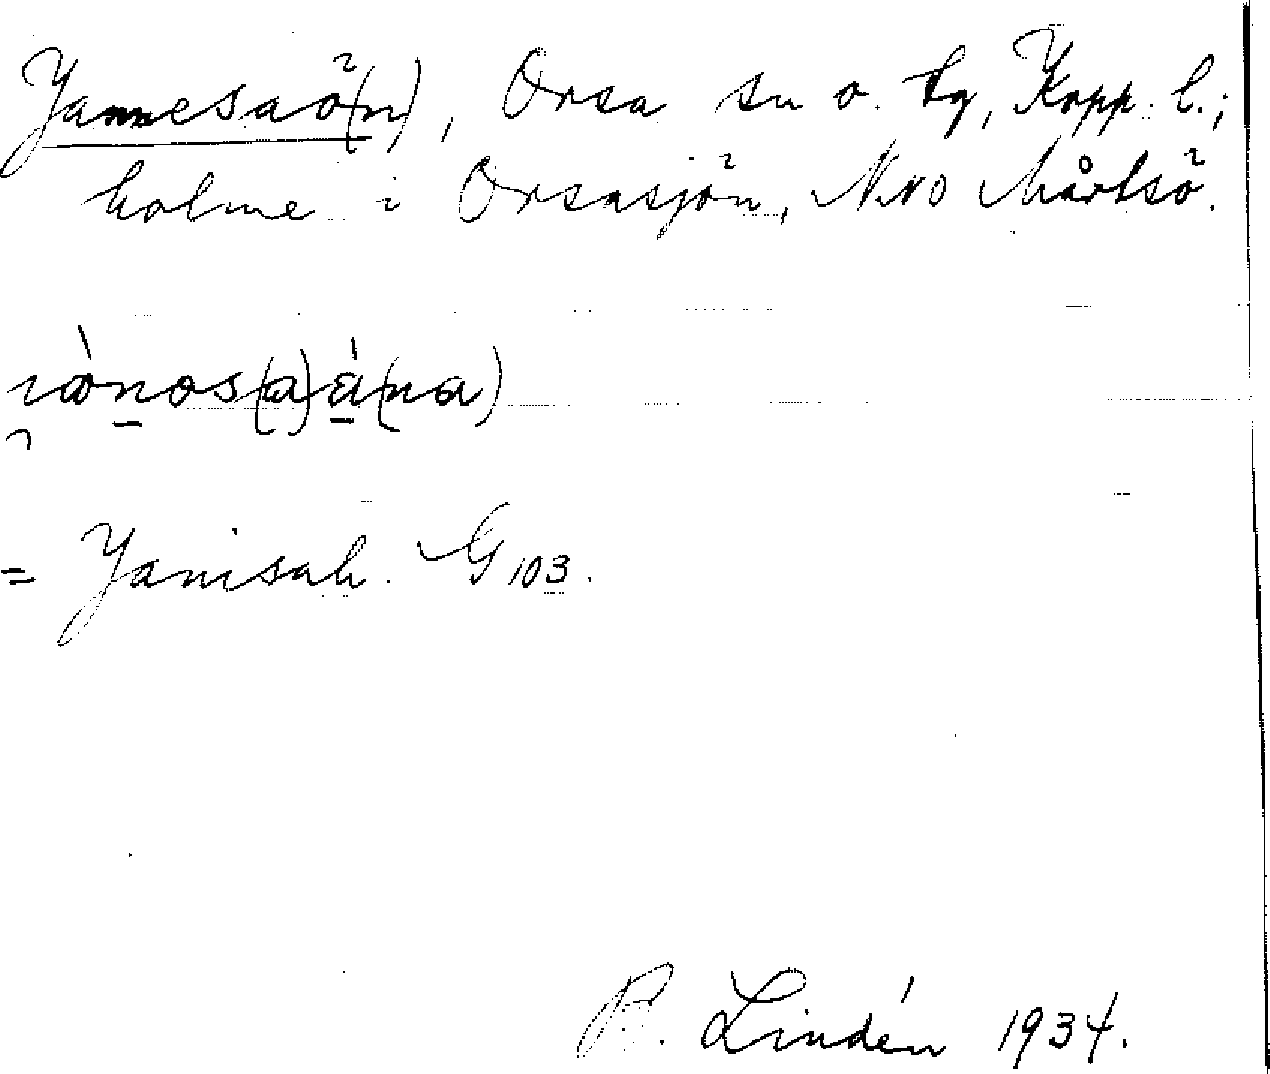 Jannesaö(n), Orsa sn o. tg, Kopp. l.;
holme i Orsasjön, NNO Mårtsö.
= Janisah. G 103.
B. Lindén 1934.